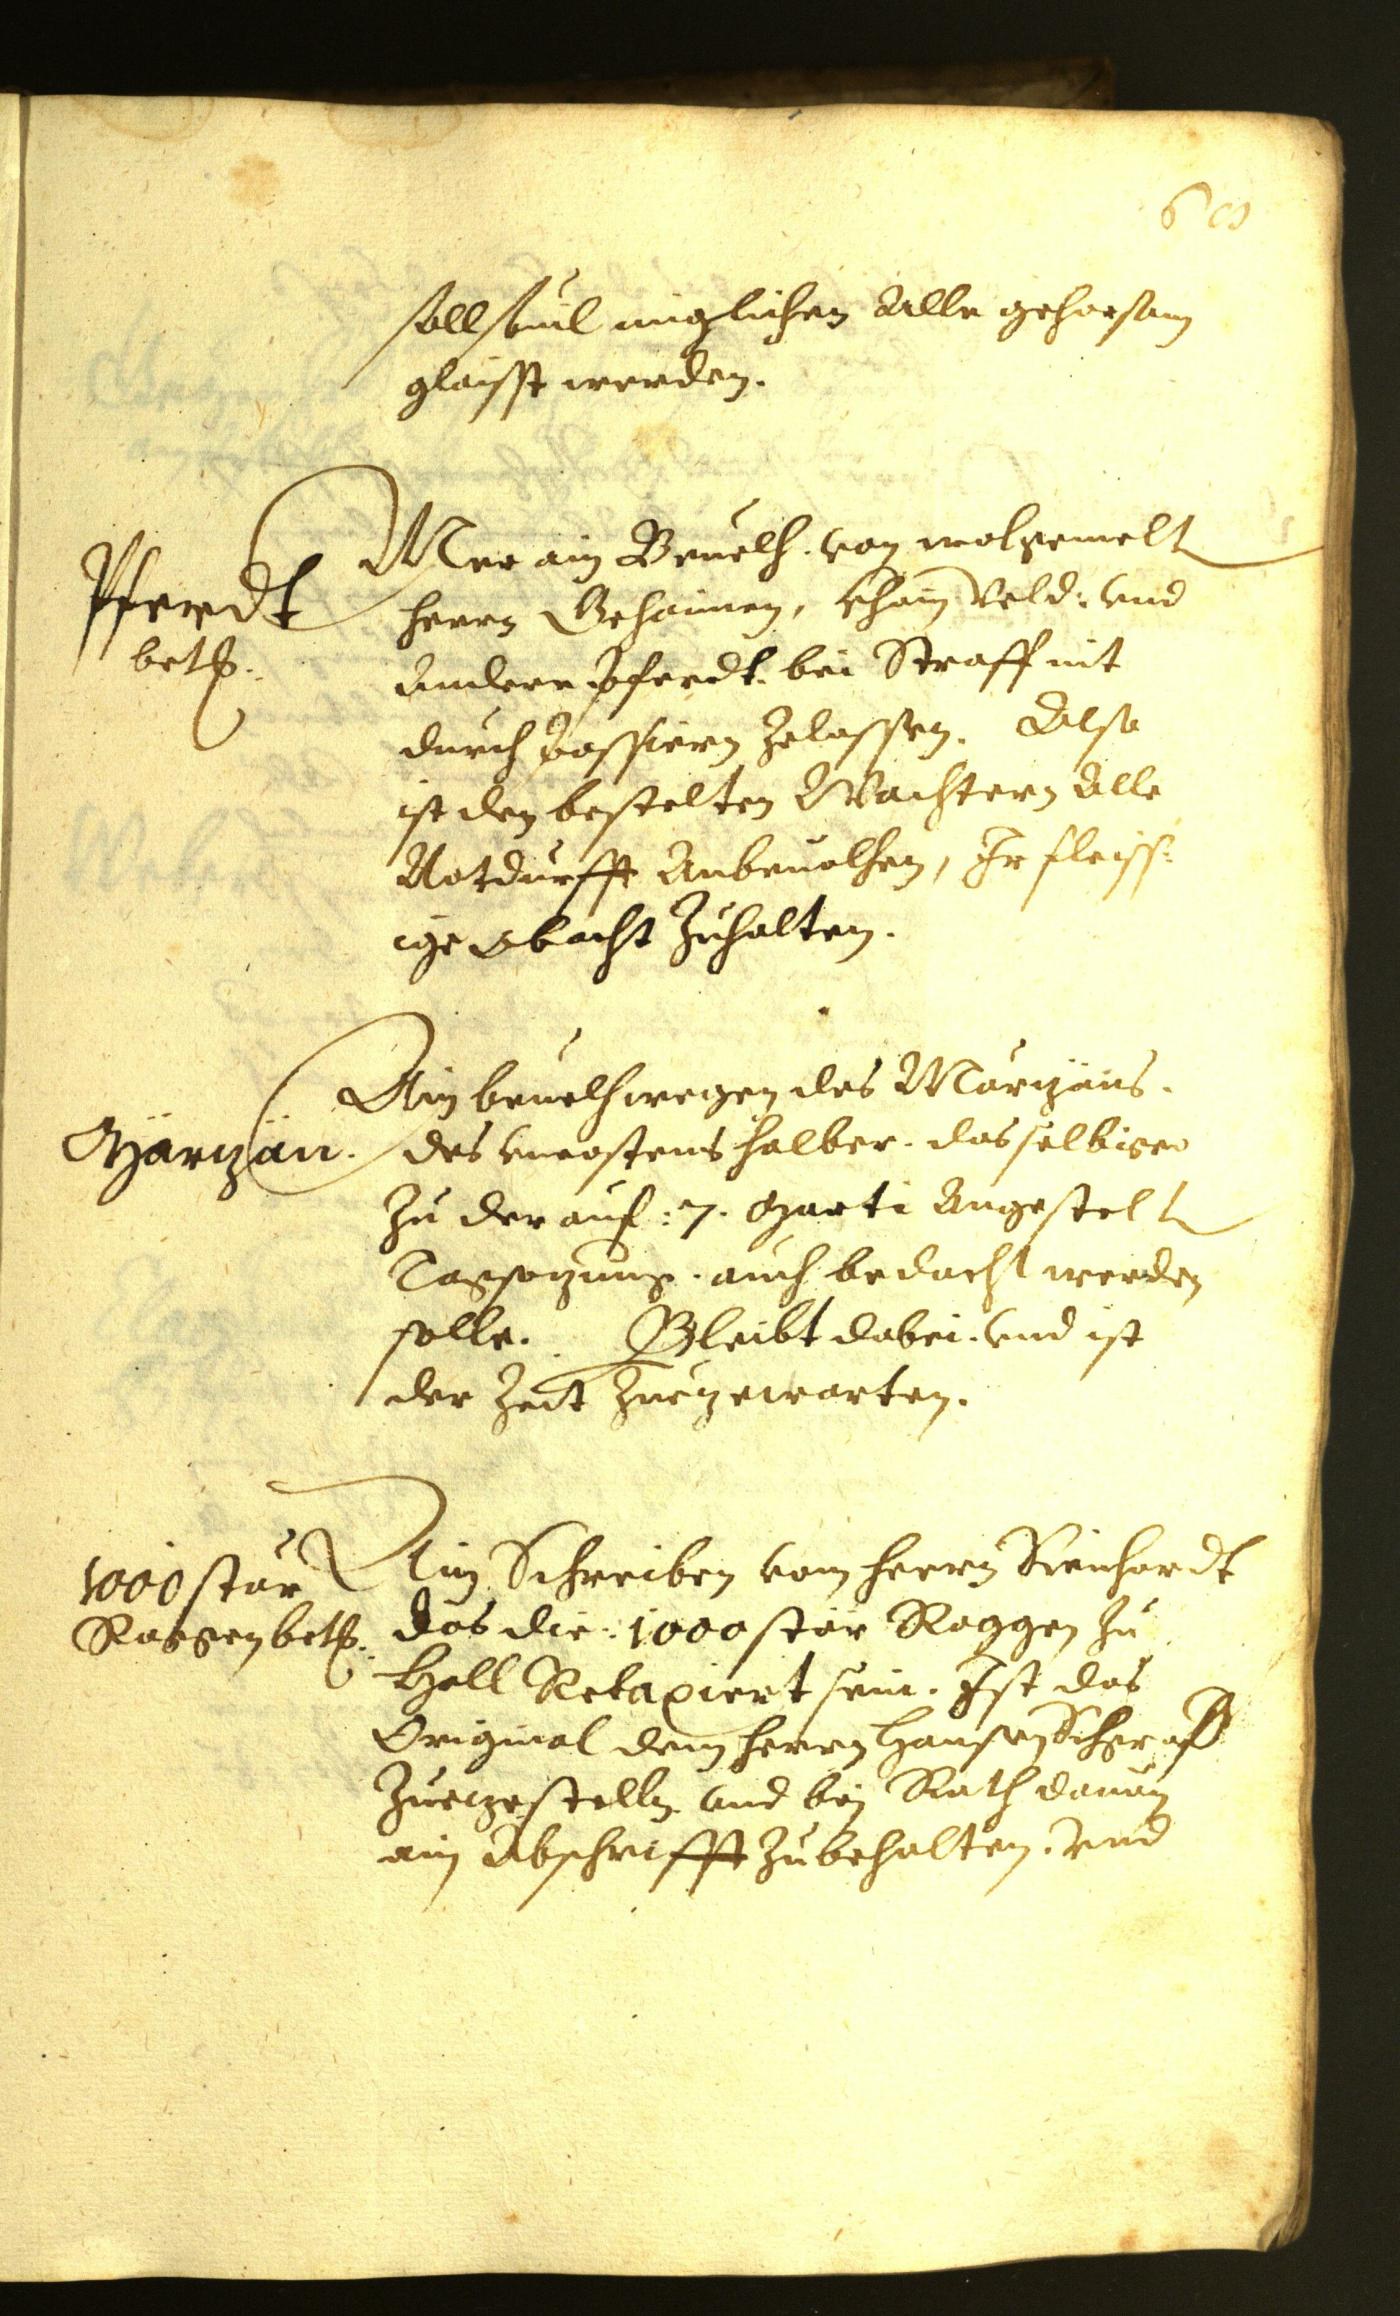 60
soll souil miglichen Alle gehorsam
glaisst werden.
Pferdt
betr.
Mer ain Beuelh von wolgemelt
herrn Gehaimen, khain Veld: vnd
Andere Pferdt bei Straff nit
durch Passiern zelassen. Also
ist den bestelten Wachtern Alle
Notdurfft Anbeuolhen, Ir fleiss:
ige obacht Zuhalten.
Märzän.
Ain beuelh wegen des Märzäns.
des halber. das selbiger
Zu der auf: 7. Marti Angestelt
Tagsazung. auch bedacht werden
solle. Bleibt dabei. vnd ist
der Zeit Zuezewarten.
1000 stär
Roggen betr.
Ain Schreiben vom herrn Reinhardt
das die: 1000 stär Roggen Zu
Hall Relaxiert sein. Ist das
Original dem herrn Hansen
Zuezestelln vnd bej Rath dauon
ain Abschrifft Zubehalten. Vnd